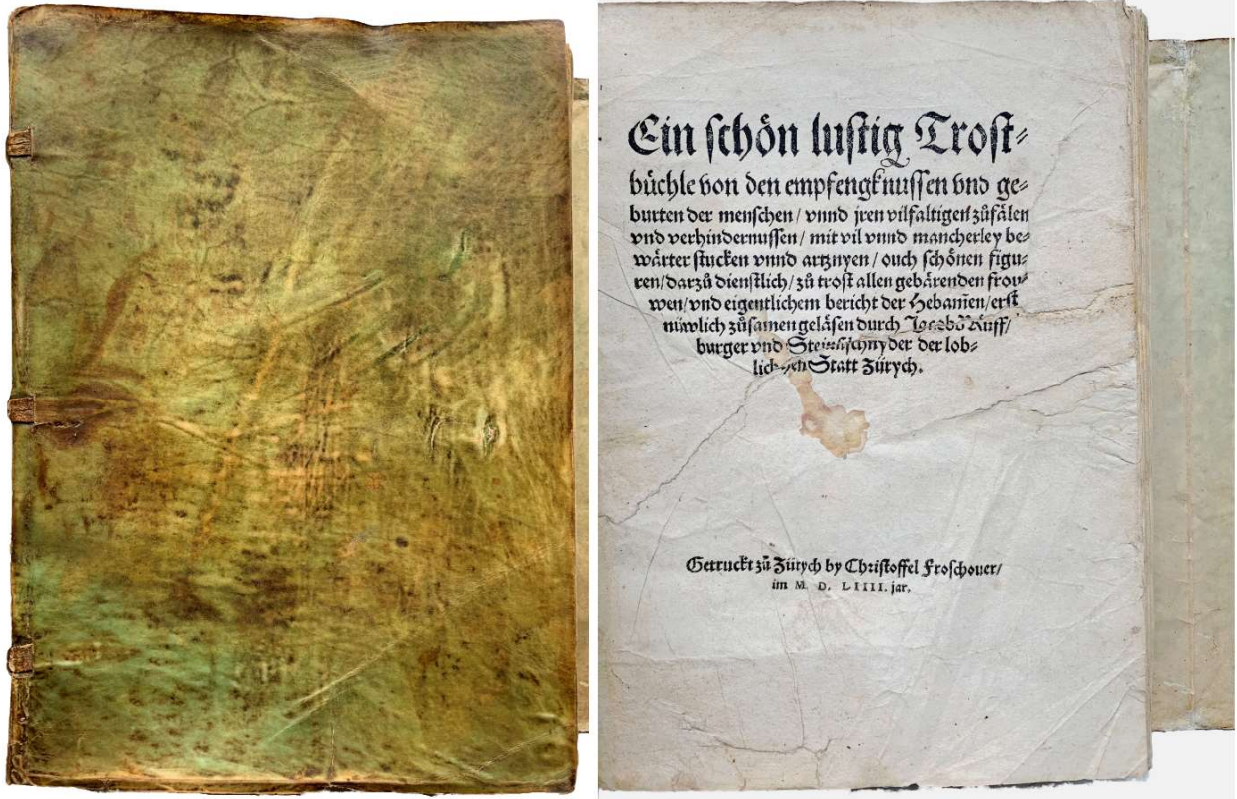 Ein schön lustig Trost⸗
büchle von den empfengknussen vnd ge⸗
burten der menschen / vnnd jren vilfaltigen zůfälen
vnd verhindernussen / mit vil vnnd mancherley be⸗
wärter stucken vnnd artznyen / ouch schönen figu⸗
ren / darzů dienstlich / zů trost allen gebärenden frou⸗
wen / vnd eigentlichem bericht der Hebam̃en / erst
nüwlich zůsamen geläsen durch Rüff /
burger vnd der lob⸗
Statt Zürych.
Getruckt zů Zürych by Christoffel Froschouer /
im M. D. LIIII. jar.